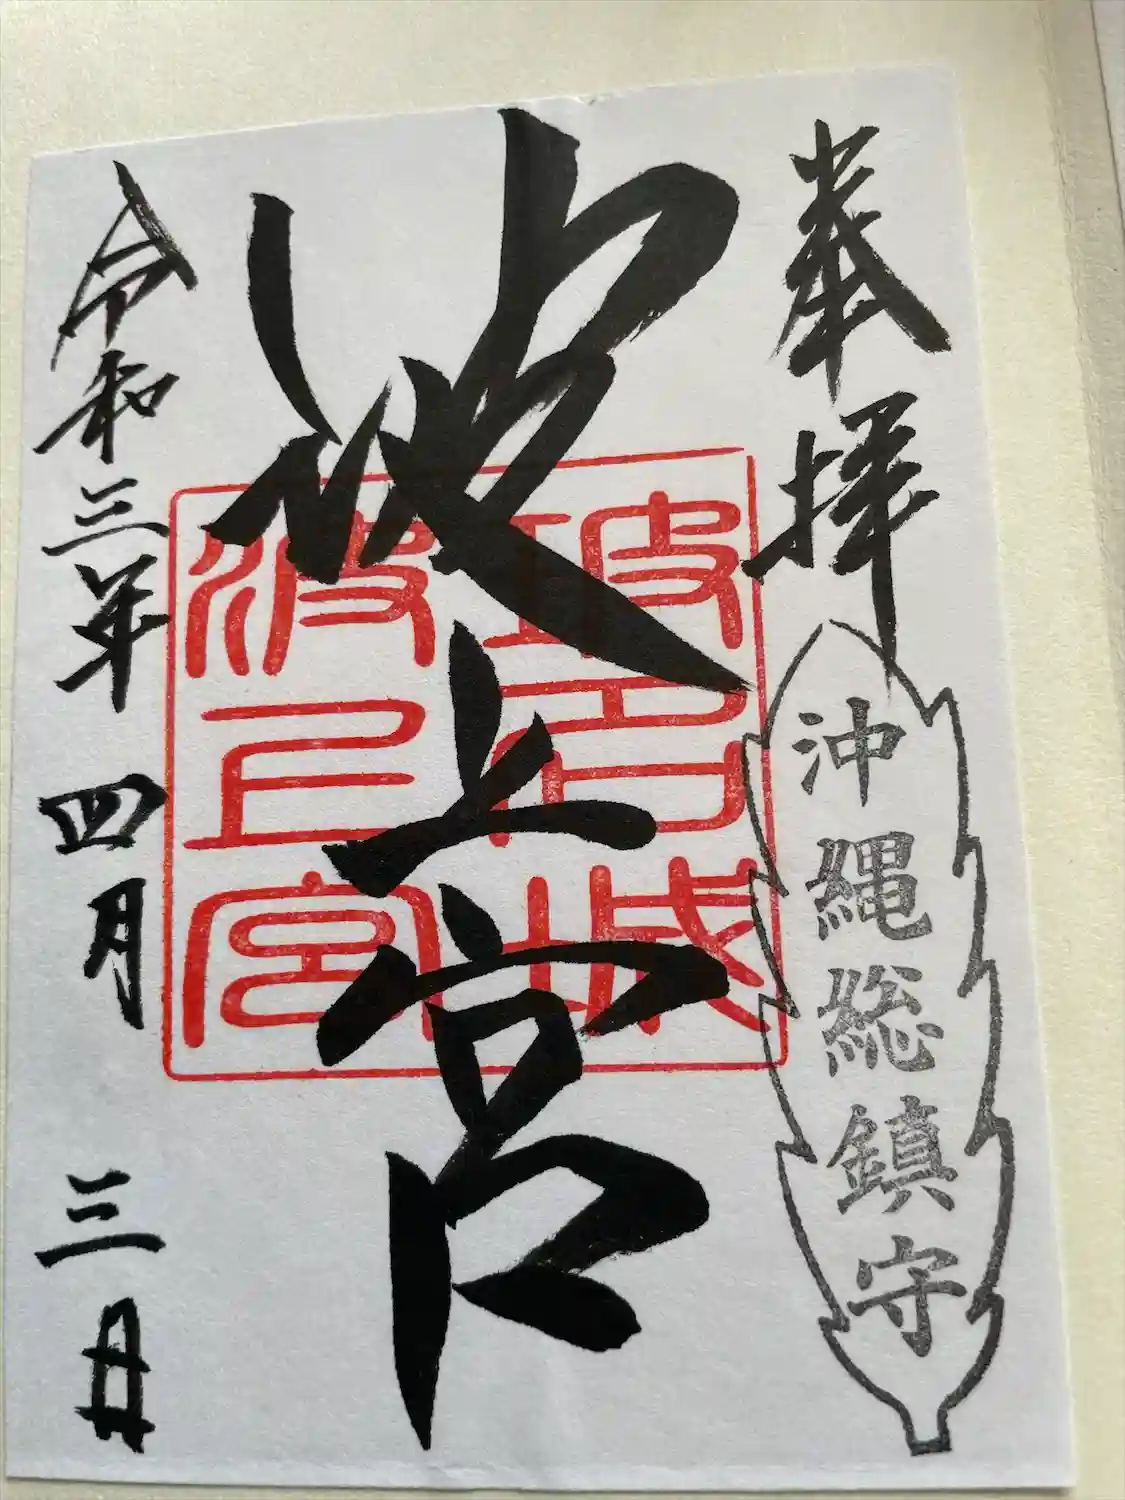 奉拝
沖縄総鎮守
波上宮
玻名城
波上宮
令和三年四月三日